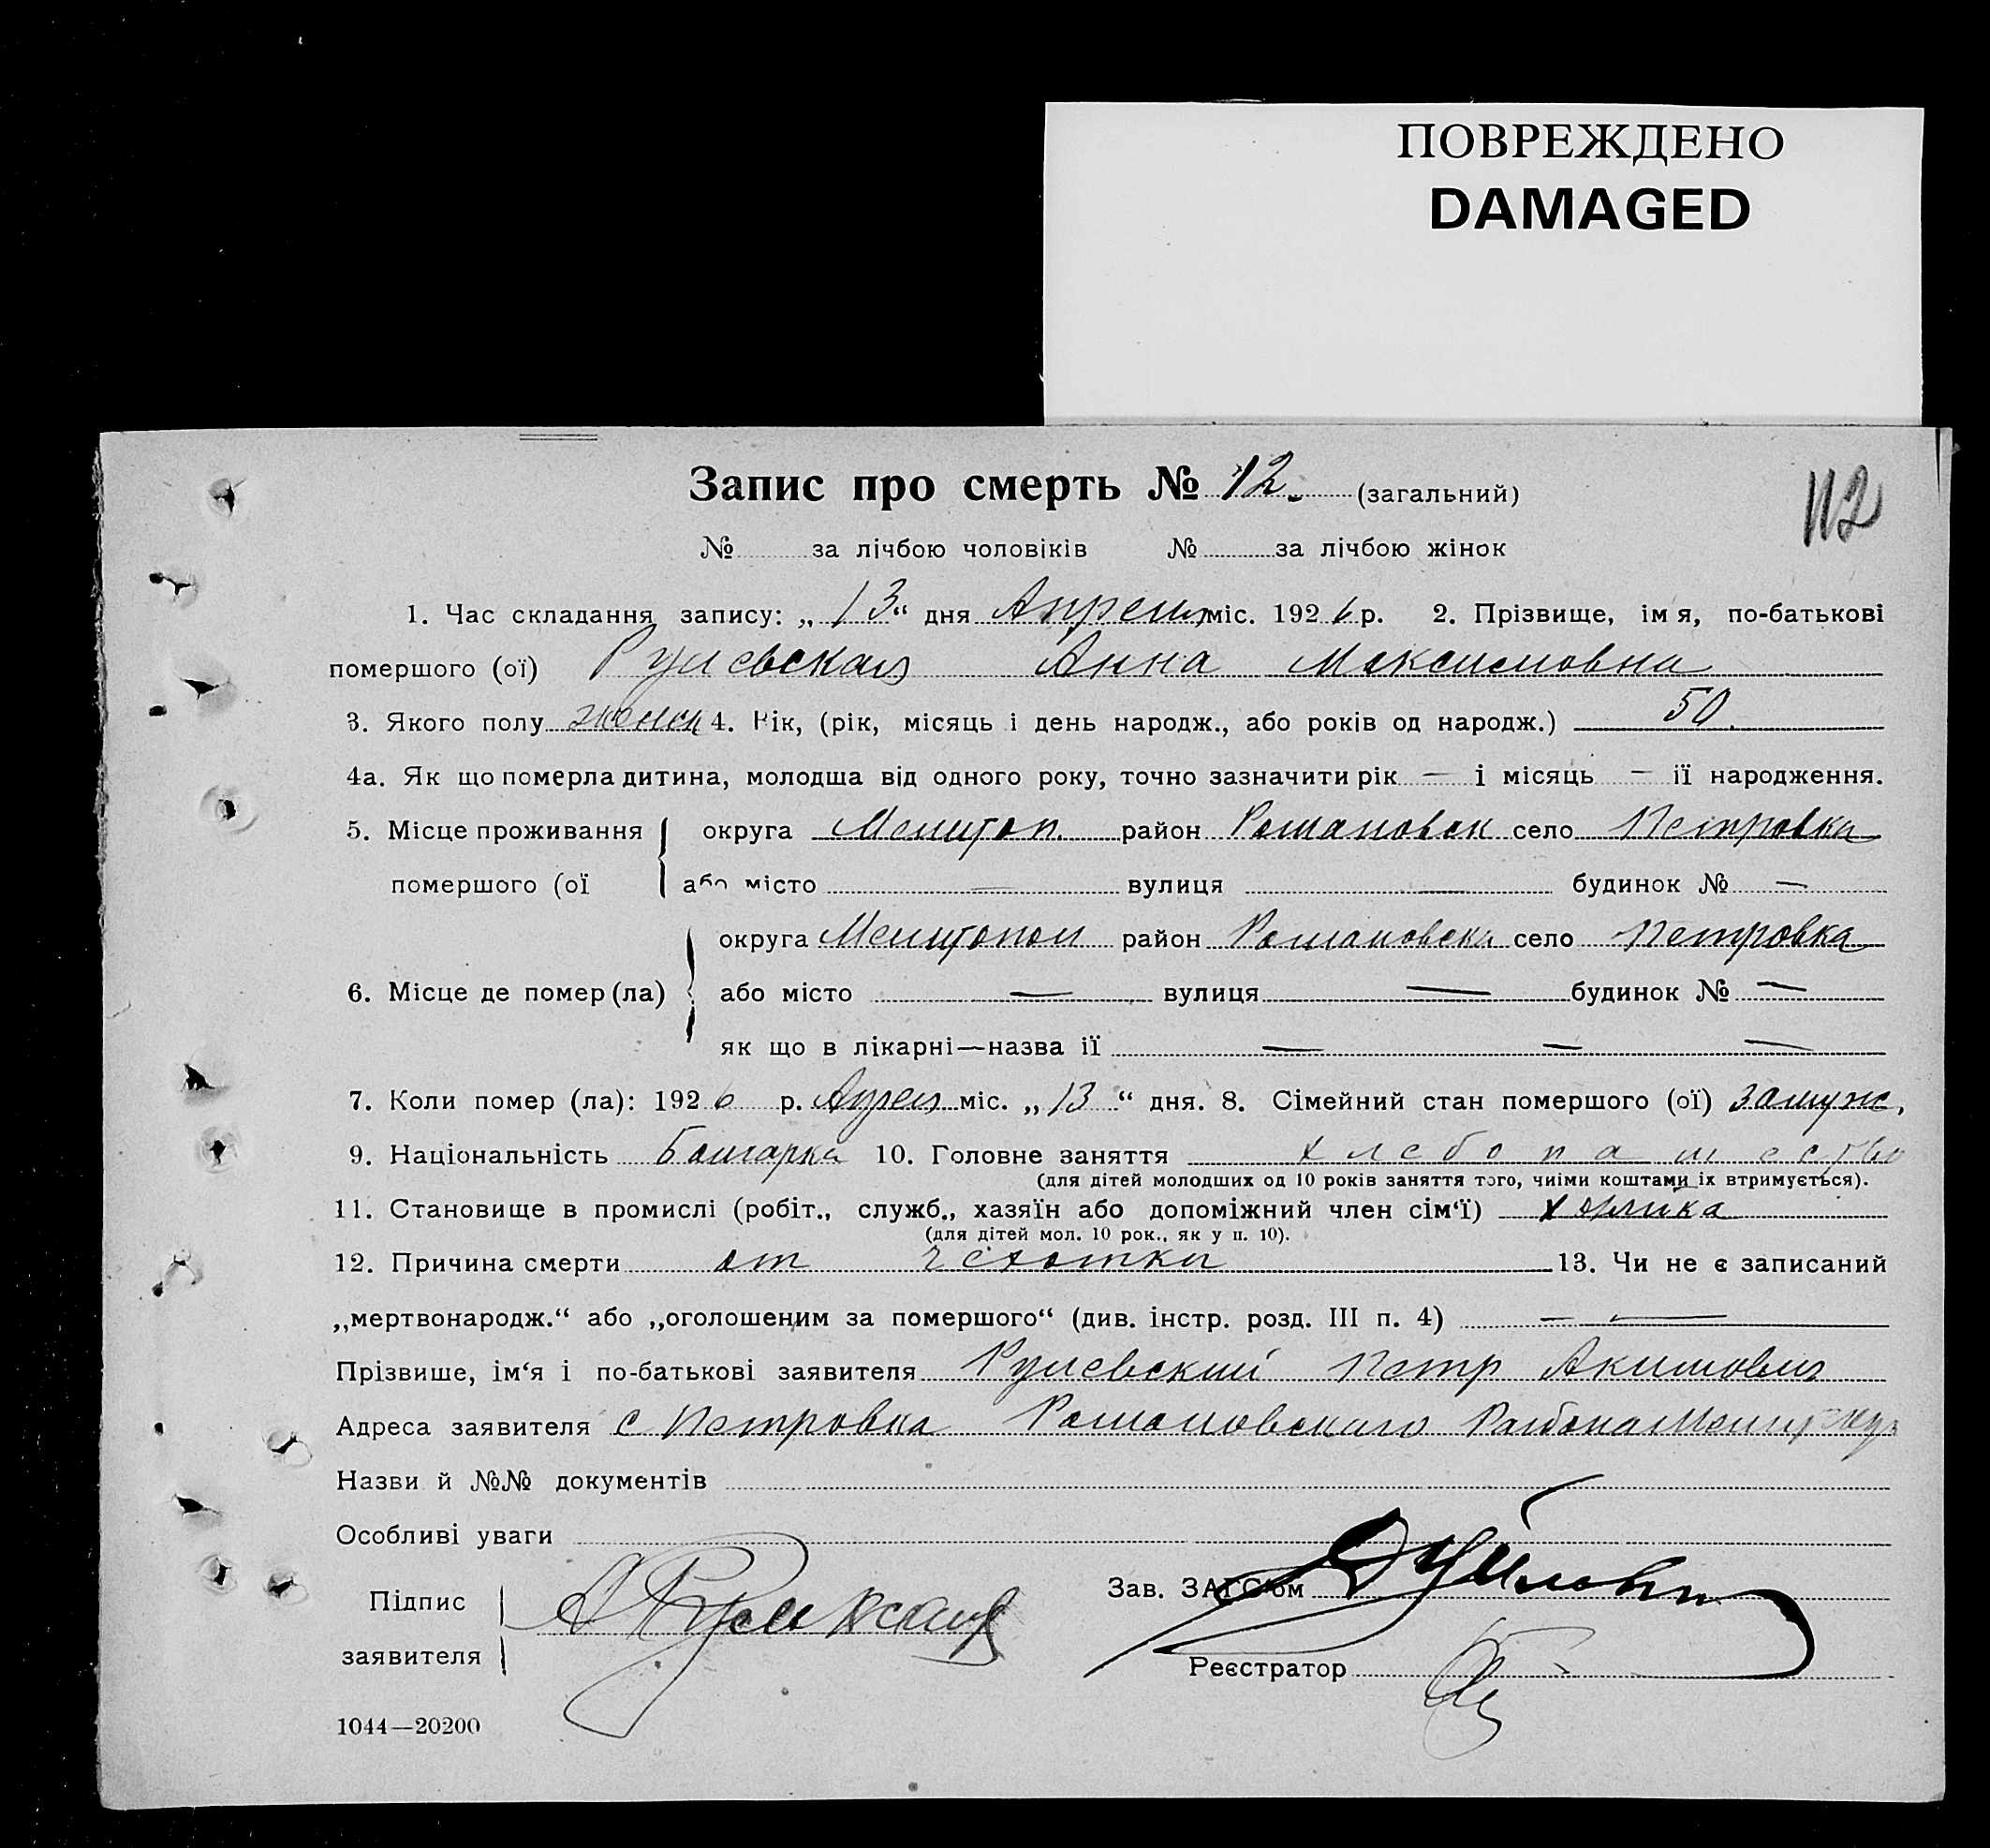 ПОВРЕЖДЕНО
DAMAGED
Запис про смерть № 12. (загальний)
112
№ за лічбою чоловіків № за лічбою жінок
1. Час складання запису: „13“ дня Апреля міс. 1926 р. 2. Прізвище, імя, по-батькові
помершого (ої) Анна Максимовна
3. Якого полу женск 4. Вік, (рік, місяць і день народж., або років од народж.) 50.
4а. Як що померла дитина, молодша від одного року, точно зазначити рік — і місяць — її народження.
5. Місце проживання помершого (ої
округа Мелитоп. район Романовск село Петровка
або місто — вулиця — будинок № —
6. Місце де помер (ла)
округа Мелитопол район Романовски село Петровка
або місто — вулиця — будинок № —
як що в лікарні—назва її — — —
7. Коли помер (ла): 1926 р. Апрел міс. „13“ дня. 8. Сімейний стан помершого (ої) замуж,
9. Національність Болгарка 10. Головне заняття хлебопашество
(для дітей молодших од 10 років заняття того, чиїми коштами їх втримується).
11. Становище в промислі (робіт., служб., хазяїн або допоміжний член сім‘ї)
(для дітей мол. 10 рок., як у п. 10).
12. Причина смерти от чехотки 13. Чи не є записаний
„мертвонародж.“ або „оголошеним за помершого“ (див. інстр. розд. III п. 4) — —
Прізвише, ім‘я і по-батькові заявителя Петр Акимович
Адреса заявителя с Петровка Романовскаго Района
Назви й №№ документів
Особливі уваги
Підпис заявителя
Зав. ЗАГС‘ом
Реєстратор
1044—20200